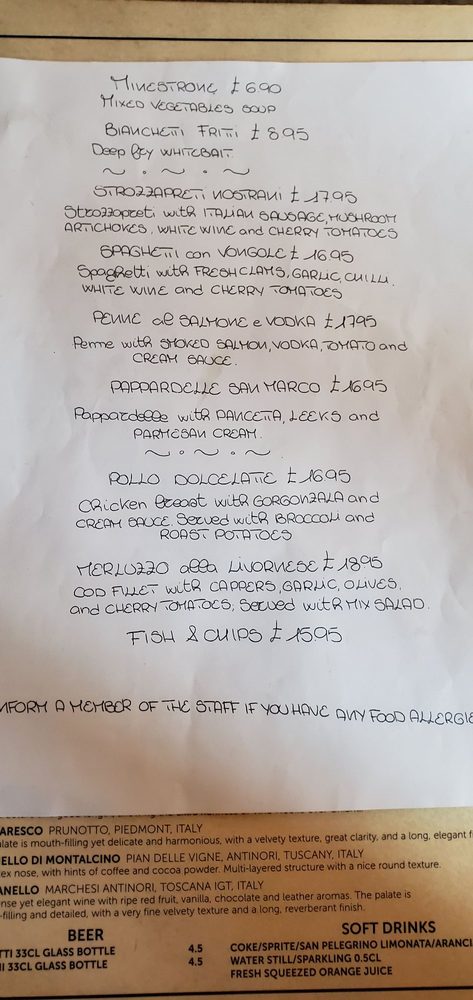 MINESTRONE £690
MIXED VEGETABLES SOUP
BIANCHETTI FRITTI £895
Deep fry WHITEBAIT.
~ . ~ . ~
STROZZAPRETI NOSTRANI £1795
Strozzapreti with ITALIAN SAUSAGE, MUSHROOM
ARTICHOKES, WHITE WINE and CHERRY TOMATOES
SPAGHETTI con VONGOLE £1695
Spaghetti with FRESH CLAMS, GARLIC, CHILLI.
WHITE WINE and CHERRY TOMATOES
PENNE al SALMONE e VODKA £1795
Penne with SMOKED SALMON, VODKA, TOMATO and
CREAM SAUCE.
PAPPARDELLE SAN MARCO £1695
Pappardelle with PANCETTA, LEEKS and
PARMESAN CREAM.
~ . ~ . ~
POLLO DOLCELATTE £1695
Chicken breast with GORGONZALA and
CREAM SAUCE. Served with BROCCOLI and
ROAST POTATOES
MERLUZZO alla LIVORNESE £1895
COD FILLET with CAPPERS, GARLIC, OLIVES,
and CHERRY TOMATOES; Served with MIX SALAD.
FISH & CHIPS £1595
NFORM A MEMBER OF THE STAFF IF YOU HAVE ANY FOOD ALLERGIE
ARESCO PRUNOTTO, PIEDMONT, ITALY
alate is mouth-filling yet delicate and harmonious, with a velvety texture, great clarity, and a long, elegant f
ELLO DI MONTALCINO PIAN DELLE VIGNE, ANTINORI, TUSCANY, ITALY
ex nose, with hints of coffee and cocoa powder. Multi-layered structure with a nice round texture.
ANELLO MARCHESI ANTINORI, TOSCANA IGT, ITALY
nse yet elegant wine with ripe red fruit, vanilla, chocolate and leather aromas. The palate is
-filling and detailed, with a very fine velvety texture and a long, reverberant finish.
BEER
TTI 33CL GLASS BOTTLE 4.5
I 33CL GLASS BOTTLE 4.5
SOFT DRINKS
COKE/SPRITE/SAN PELEGRINO LIMONATA/ARANCI
WATER STILL/SPARKLING 0.5CL
FRESH SQUEEZED ORANGE JUICE